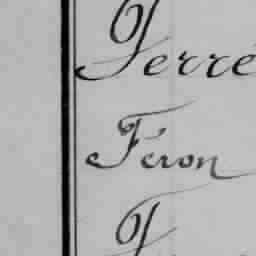 Ferré
Féron